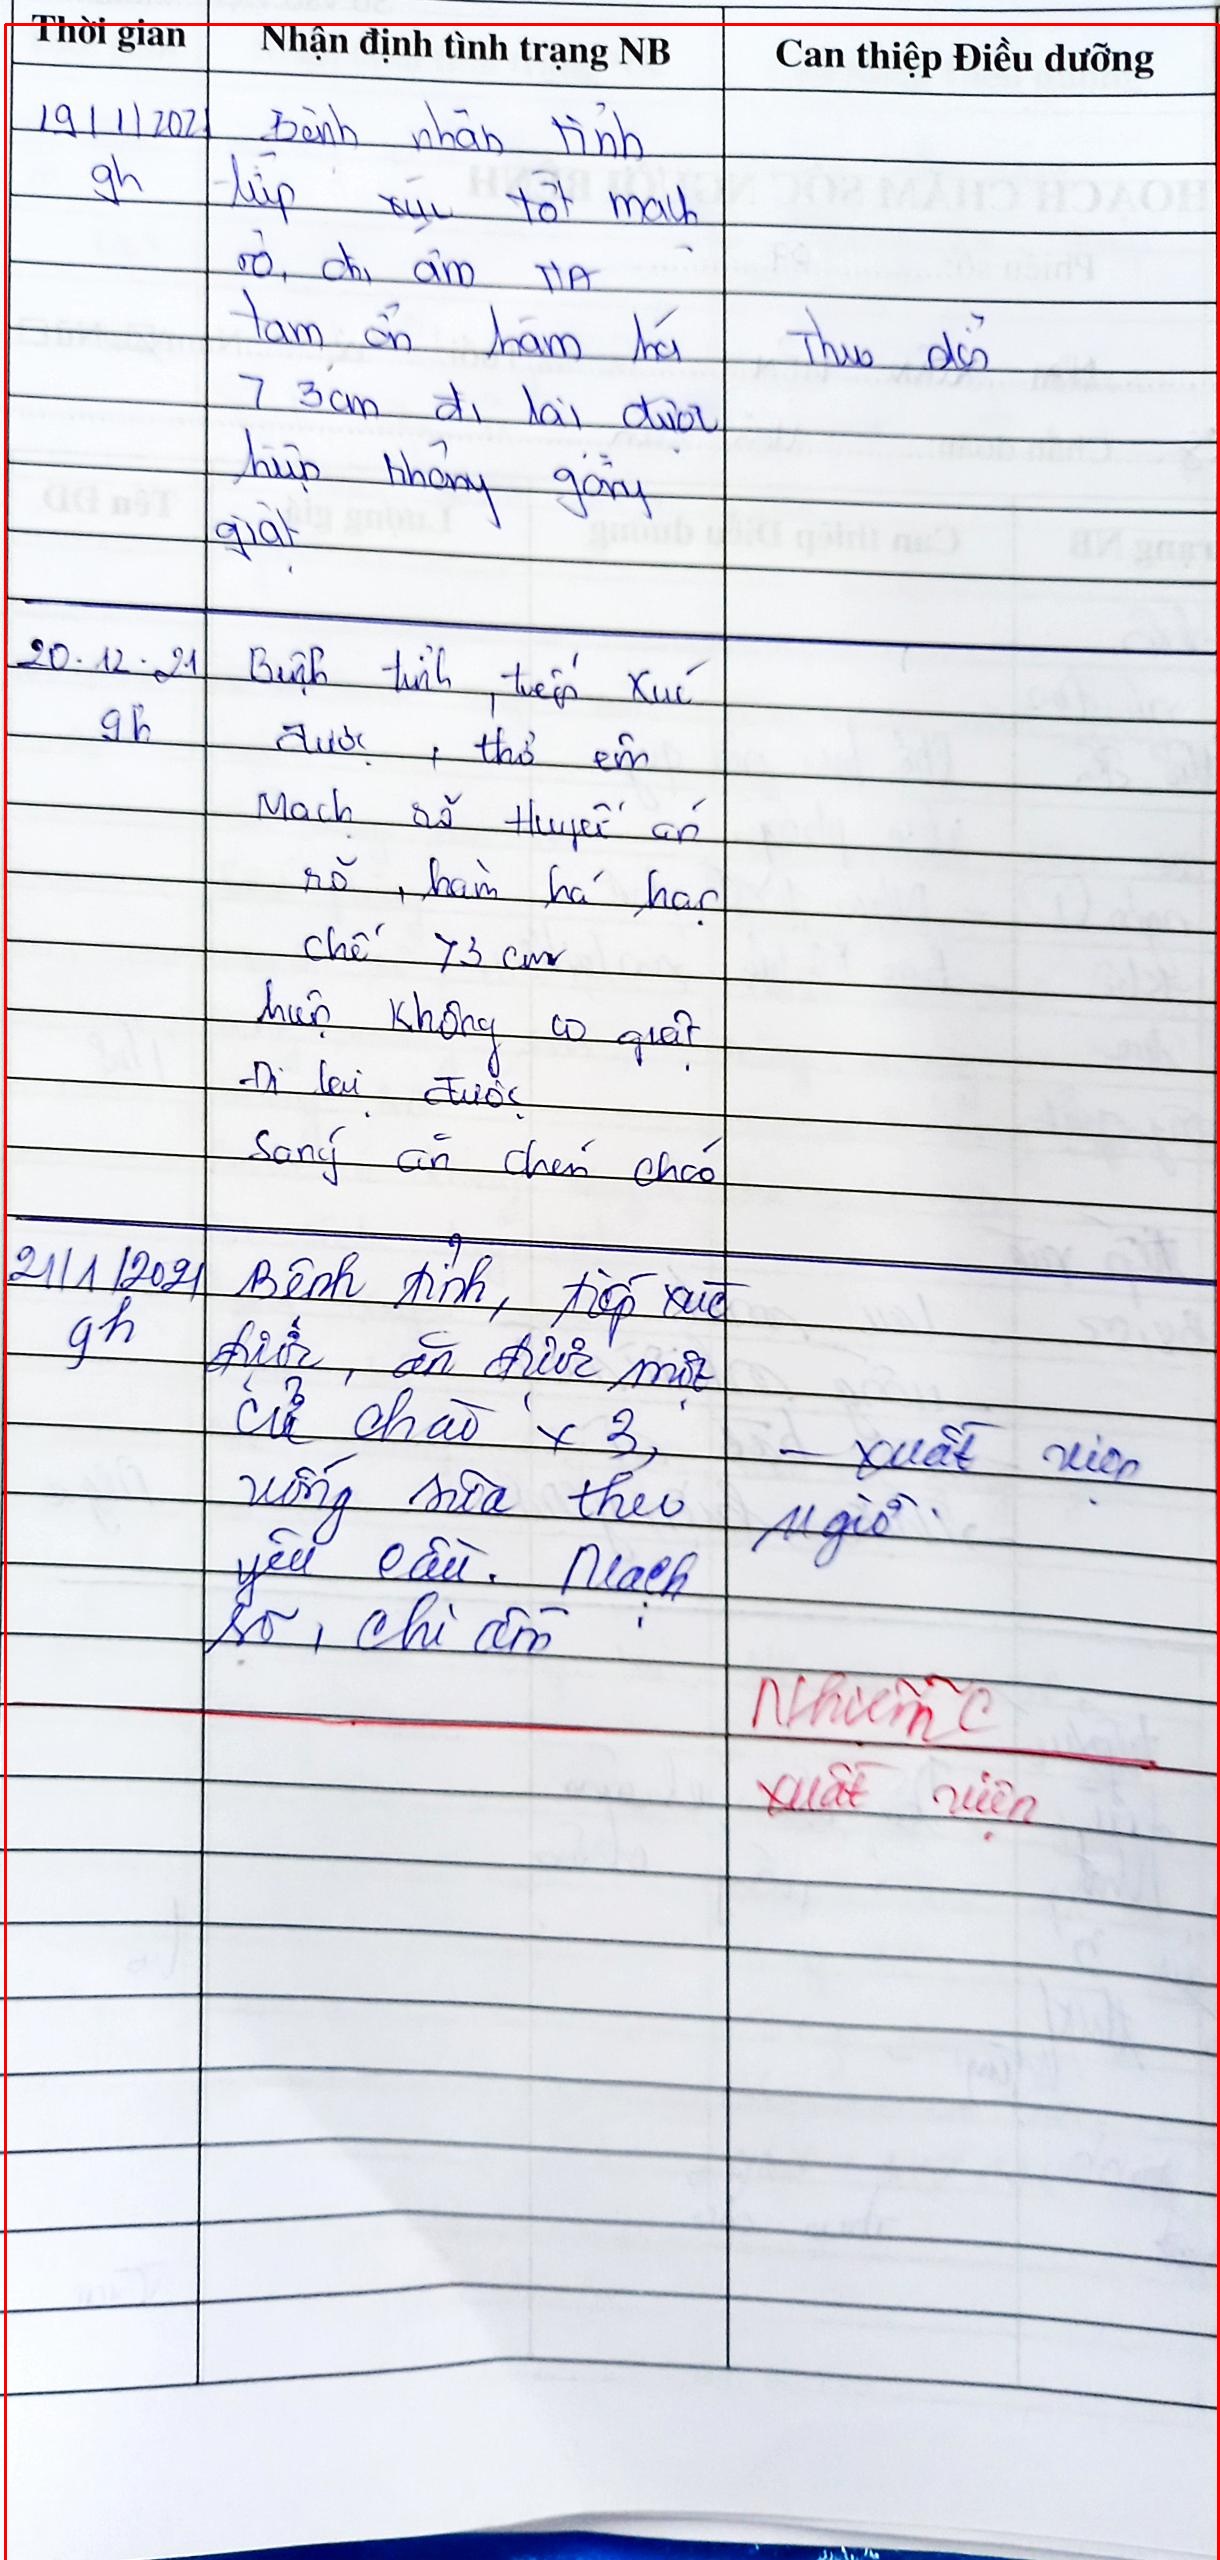 Thời gian Nhận định tình trạng NB Can thiệp Điều dưỡng
19/1/2021 Bệnh nhân tỉnh
9h tiếp xúc tốt mạch
rõ, chi ấm HA
tạm ổn hàm há Theo dõi
> 3cm đi lại được
hiện không gồng
giật
20.12.21 Bệnh tỉnh, tiếp xúc
9h được, thở êm
Mạch rõ Huyết áp
rõ, hàm há hạn
chế >3 cm
hiện không co giật
Đi lại được
Sáng ăn chén cháo
21/1/2021 Bệnh tỉnh, tiếp xúc
9h được, ăn được một
cử cháo x 3, - xuất viện
uống sữa theo 11 giờ.
yêu cầu. Mạch
rõ, chi ấm
Nhiễm C
xuất viện